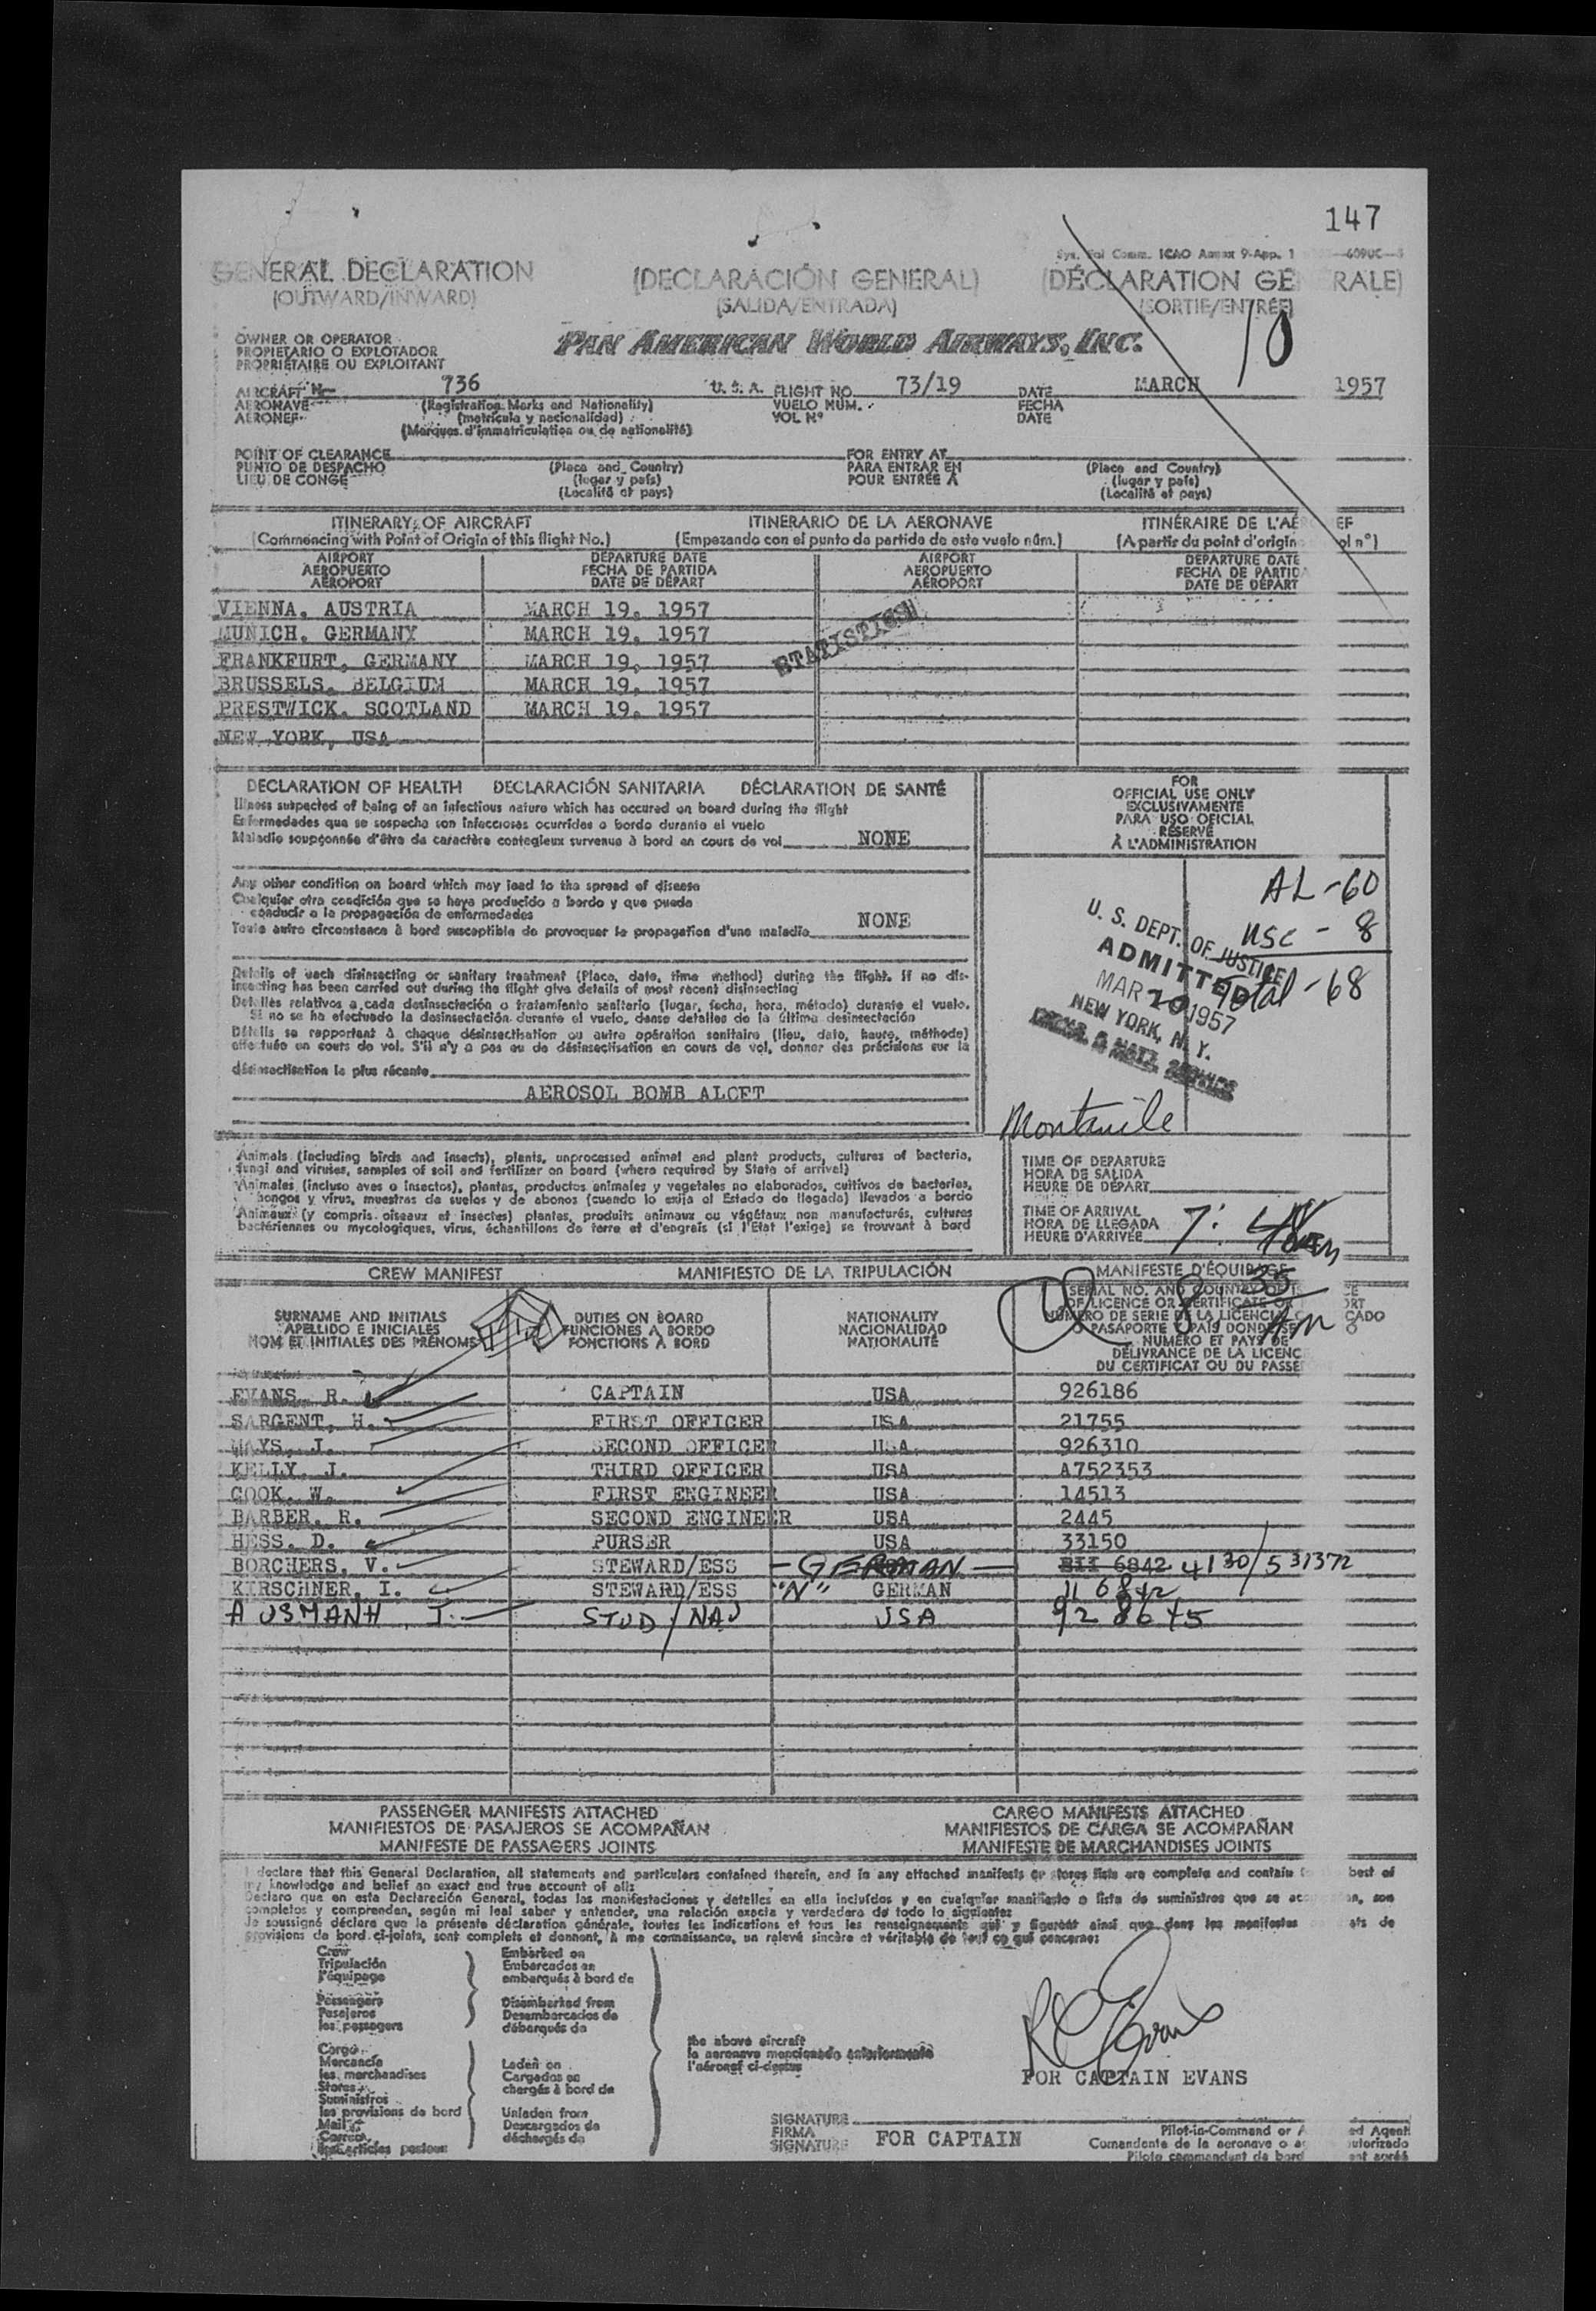 147
Annex 9-App. 1
GENERAL DECLARATION (DECLARACIÓN GENERAL) (DÉCLARATION GE RALE)
(OUTWARD/INWARD) (SALIDA/ENTRADA) (SORTIE/ENTRÉE)
10
OWNER OR OPERATOR
PROPIETARIO O EXPLOTADOR
PROPRIÉTAIRE OU EXPLOITANT
PAN AMERICAN WORLD AIRWAYS, INC.
AIRCRAFT N- 736 U. S. A. FLIGHT NO. 73/19 DATE MARCH 1957
AERONAVE (Registration Marks and Nationality) VUELO NÚM. FECHA
AERONEF (matrícula y nacionalidad) VOL Nº DATE
(Marques d'immatriculation ou de nationalité)
POINT OF CLEARANCE FOR ENTRY AT
PUNTO DE DESPACHO (Place and Country) PARA ENTRAR EN (Place and Country)
LIEU DE CONGÉ (lugar y país) POUR ENTRÉE À (lugar y país)
(Localité et pays) (Localité et pays)
ITINERARY OF AIRCRAFT ITINERARIO DE LA AERONAVE ITINÉRAIRE DE L'AÉ EF
(Commencing with Point of Origin of this flight No.) (Empezando con el punto de partida de este vuelo núm.) (A partir du point d'origin ol nº)
AIRPORT DEPARTURE DATE AIRPORT DEPARTURE DATE
AEROPUERTO FECHA DE PARTIDA AEROPUERTO FECHA DE PARTID
AÉROPORT DATE DE DÉPART AÉROPORT DATE DE DÉPART
VIENNA, AUSTRIA MARCH 19, 1957
MUNICH, GERMANY MARCH 19, 1957
STATISTICS
FRANKFURT, GERMANY MARCH 19, 1957
BRUSSELS, BELGIUM MARCH 19, 1957
PRESTWICK, SCOTLAND MARCH 19, 1957
NEW YORK, USA
DECLARATION OF HEALTH DECLARACIÓN SANITARIA DÉCLARATION DE SANTÉ
Illness suspected of being of an infectious nature which has occured on board during the flight
Enfermedades que se sospecha son infecciosas ocurridas a bordo durante el vuelo
Maladie soupçonnée d'être de caractère contagieux survenue à bord en cours de vol NONE
Any other condition on board which may lead to the spread of disease
Cualquier otra condición que se haya producido a bordo y que pueda
conducir a la propagación de enfermedades
Toute autre circonstance à bord susceptible de provoquer la propagation d'une maladie NONE
Details of each disinsecting or sanitary treatment (Place, date, time method) during the flight. If no dis-
insecting has been carried out during the flight give details of most recent disinsecting
Detalles relativos a cada desinsectación o tratamiento sanitario (lugar, fecha, hora, método) durante el vuelo.
Si no se ha efectuado la desinsectación durante el vuelo, dense detalles de la última desinsectación
Détails se rapportant à chaque désinsectisation ou autre opération sanitaire (lieu, date, heure, méthode)
effectuée en cours de vol. S'il n'y a pas eu de désinsectisation en cours de vol, donner des précisions sur la
désinsectisation la plus récente
AEROSOL BOMB ALCET
FOR
OFFICIAL USE ONLY
EXCLUSIVAMENTE
PARA USO OFICIAL
RÉSERVÉ
À L'ADMINISTRATION
AL-60
USC - 8
Total - 68
U. S. DEPT. OF JUSTICE
ADMITTED
MAR 20 1957
NEW YORK, N. Y.
Animals (including birds and insects), plants, unprocessed animal and plant products, cultures of bacteria,
fungi and viruses, samples of soil and fertilizer on board (where required by State of arrival)
Animales (incluso aves o insectos), plantas, productos animales y vegetales no elaborados, cultivos de bacterias,
hongos y virus, muestras de suelos y de abonos (cuando lo exija el Estado de llegada) llevados a bordo
Animaux (y compris oiseaux et insectes) plantes, produits animaux ou végétaux non manufacturés, cultures
bactériennes ou mycologiques, virus, échantillons de terre et d'engrais (si l'Etat l'exige) se trouvant à bord
TIME OF DEPARTURE
HORA DE SALIDA
HEURE DE DÉPART
TIME OF ARRIVAL
HORA DE LLEGADA
HEURE D'ARRIVÉE 7:
CREW MANIFEST MANIFIESTO DE LA TRIPULACIÓN MANIFESTE D'ÉQUIPAGE
8 35 Am
SURNAME AND INITIALS DUTIES ON BOARD NATIONALITY
APELLIDO E INICIALES FUNCIONES A BORDO NACIONALIDAD
NOM ET INITIALES DES PRÉNOMS FONCTIONS À BORD NATIONALITÉ
SERIAL NO. AND COUNTRY OF
OF LICENCE OR CERTIFICATE OR ORT
NÚMERO DE SERIE DE LA LICENCIA CADO
O PASAPORTE PAÍS DONDE SE O
NUMÉRO ET PAYS DE
DÉLIVRANCE DE LA LICENC
DU CERTIFICAT OU DU PASSE
EVANS, R. CAPTAIN USA 926186
SARGENT, H. FIRST OFFICER USA 21755
MAYS, J. SECOND OFFICER USA 926310
KELLY, J. THIRD OFFICER USA A752353
COOK, W. FIRST ENGINEER USA 14513
BARBER, R. SECOND ENGINEER USA 2445
HESS, D. PURSER USA 33150
BORCHERS, V. STEWARD/ESS - GERMAN - BII 6842 4130/531372
KIRSCHNER, I. STEWARD/ESS "N" GERMAN 11 6842
AUSMANH, J. STUD/NAV USA 928645
PASSENGER MANIFESTS ATTACHED CARGO MANIFESTS ATTACHED
MANIFIESTOS DE PASAJEROS SE ACOMPAÑAN MANIFIESTOS DE CARGA SE ACOMPAÑAN
MANIFESTE DE PASSAGERS JOINTS MANIFESTE DE MARCHANDISES JOINTS
I declare that this General Declaration, all statements and particulars contained therein, and in any attached manifests or stores lists are complete and contain best of
my knowledge and belief an exact and true account of all:
Declaro que en esta Declaración General, todas las manifestaciones y detalles en ella incluídos y en cualquier manifiesto o lista de suministros que se aco n, son
completos y comprenden, según mi leal saber y entender, una relación exacta y verdadera de todo lo siguiente:
Je soussigné déclare que la présente déclaration générale, toutes les indications et tous les renseignements qui y figurent ainsi que dans les manifestes ats de
provisions de bord ci-joints, sont complets et donnent, à ma connaissance, un relevé sincère et véritable de tout ce qui concerne:
Crew Embarked on
Tripulación Embarcados en
l'équipage embarqués à bord de
Passengers Disembarked from
Pasajeros Desembarcados de
les passagers débarqués de
the above aircraft
la aeronave mencionada anteriormente
l'aéronef ci-dessus
Cargo
Mercancía Laden on
les marchandises Cargados en
Stores chargés à bord de
Suministros
les provisions de bord Unladen from
Mail Descargados de
Correo déchargés de
les articles postaux
R C Evans
FOR CAPTAIN EVANS
SIGNATURE Pilot-in-Command or A ed Agent
FIRMA FOR CAPTAIN Comandante de la aeronave o a utorizado
SIGNATURE Pilote commandant de bord ent agréé